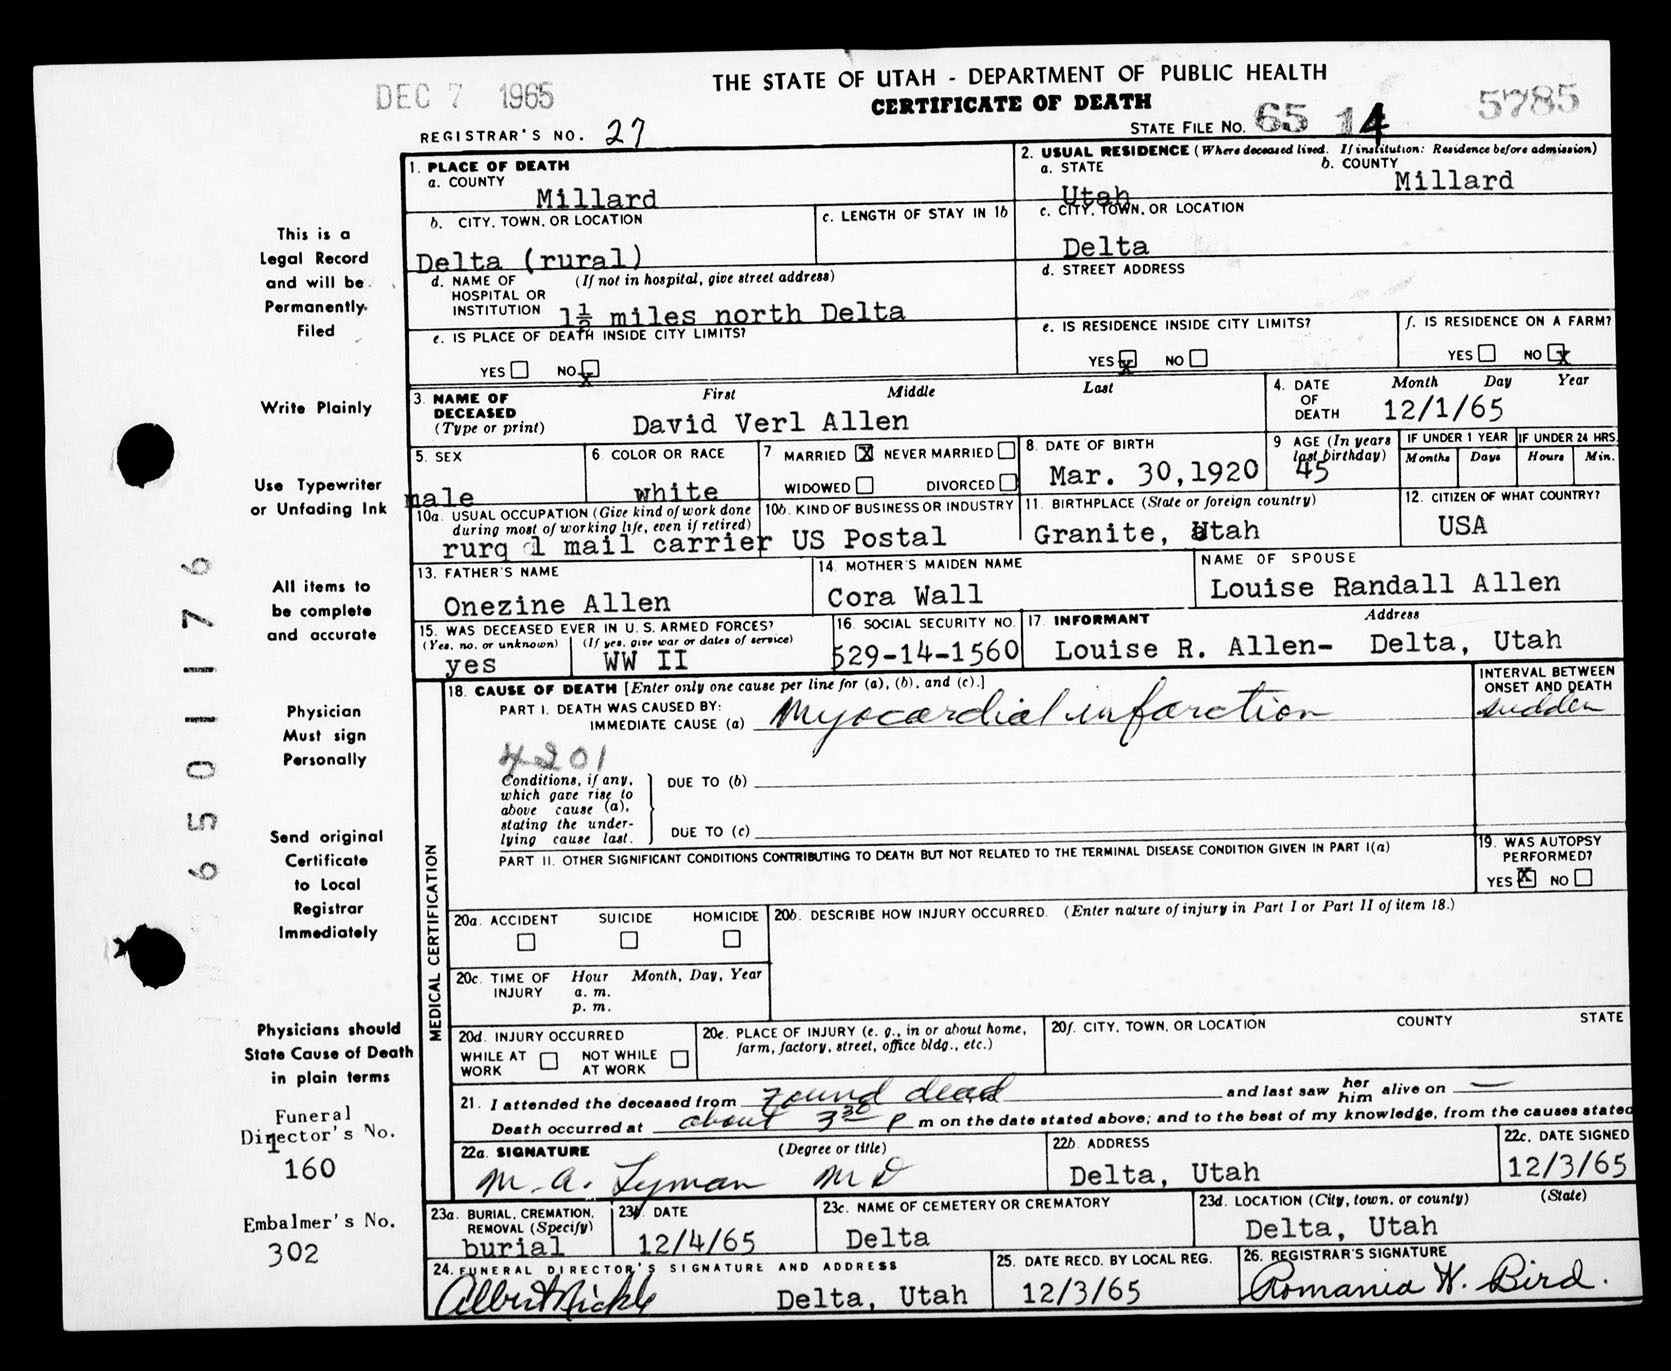 DEC 7 1965
THE STATE OF UTAH - DEPARTMENT OF PUBLIC HEALTH
CERTIFICATE OF DEATH
5785
REGISTRAR'S NO. 27
STATE FILE NO. 65 14
1. PLACE OF DEATH
a. COUNTY
Millard
2. USUAL RESIDENCE (Where deceased lived. If institution: Residence before admission)
a. STATE
Utah
b. COUNTY
Millard
b. CITY, TOWN, OR LOCATION
Delta (rural)
c. LENGTH OF STAY IN 1b
c. CITY, TOWN, OR LOCATION
Delta
d. NAME OF HOSPITAL OR INSTITUTION (If not in hospital, give street address)
1½ miles north Delta
d. STREET ADDRESS
e. IS PLACE OF DEATH INSIDE CITY LIMITS?
YES NO x
e. IS RESIDENCE INSIDE CITY LIMITS?
YES x NO
f. IS RESIDENCE ON A FARM?
YES NO x
3. NAME OF DECEASED (Type or print)
First Middle Last
David Verl Allen
4. DATE OF DEATH
Month Day Year
12/1/65
5. SEX
male
6. COLOR OR RACE
white
7. MARRIED X NEVER MARRIED
WIDOWED DIVORCED
8. DATE OF BIRTH
Mar. 30,1920
9 AGE (In years last birthday)
45
IF UNDER 1 YEAR
Months Days
IF UNDER 24 HRS.
Hours Min.
10a. USUAL OCCUPATION (Give kind of work done during most of working life, even if retired)
rurq l mail carrier
10b. KIND OF BUSINESS OR INDUSTRY
US Postal
11. BIRTHPLACE (State or foreign country)
Granite, Utah
12. CITIZEN OF WHAT COUNTRY?
USA
13. FATHER'S NAME
Onezine Allen
14. MOTHER'S MAIDEN NAME
Cora Wall
NAME OF SPOUSE
Louise Randall Allen
15. WAS DECEASED EVER IN U. S. ARMED FORCES?
(Yes, no, or unknown) (If yes, give war or dates of service)
yes WW II
16. SOCIAL SECURITY NO.
529-14-1560
17. INFORMANT Address
Louise R. Allen- Delta, Utah
MEDICAL CERTIFICATION
18. CAUSE OF DEATH [Enter only one cause per line for (a), (b), and (c).]
PART I. DEATH WAS CAUSED BY:
IMMEDIATE CAUSE (a) Myocardial infarction
INTERVAL BETWEEN ONSET AND DEATH
sudden
4201
Conditions, if any, which gave rise to above cause (a), stating the underlying cause last.
DUE TO (b)
DUE TO (c)
PART II. OTHER SIGNIFICANT CONDITIONS CONTRIBUTING TO DEATH BUT NOT RELATED TO THE TERMINAL DISEASE CONDITION GIVEN IN PART I(a)
19. WAS AUTOPSY PERFORMED?
YES X NO
20a. ACCIDENT SUICIDE HOMICIDE
20b. DESCRIBE HOW INJURY OCCURRED. (Enter nature of injury in Part I or Part II of item 18.)
20c. TIME OF INJURY
Hour Month, Day, Year
a. m.
p. m.
20d. INJURY OCCURRED
WHILE AT WORK NOT WHILE AT WORK
20e. PLACE OF INJURY (e. g., in or about home, farm, factory, street, office bldg., etc.)
20f. CITY, TOWN, OR LOCATION COUNTY STATE
21. I attended the deceased from found dead and last saw her him alive on —
Death occurred at about 3 30 P m on the date stated above; and to the best of my knowledge, from the causes stated
22a. SIGNATURE (Degree or title)
M. A. Lyman MD
22b. ADDRESS
Delta, Utah
22c. DATE SIGNED
12/3/65
23a. BURIAL, CREMATION, REMOVAL (Specify)
burial
23b. DATE
12/4/65
23c. NAME OF CEMETERY OR CREMATORY
Delta
23d. LOCATION (City, town, or county) (State)
Delta, Utah
24. FUNERAL DIRECTOR'S SIGNATURE AND ADDRESS
Albert Nickle Delta, Utah
25. DATE RECD. BY LOCAL REG.
12/3/65
26. REGISTRAR'S SIGNATURE
Romania W. Bird.
This is a
Legal Record
and will be
Permanently
Filed
Write Plainly
Use Typewriter
or Unfading Ink
All items to
be complete
and accurate
Physician
Must sign
Personally
Send original
Certificate
to Local
Registrar
Immediately
Physicians should
State Cause of Death
in plain terms
Funeral
Director's No.
160
Embalmer's No.
302
65011176